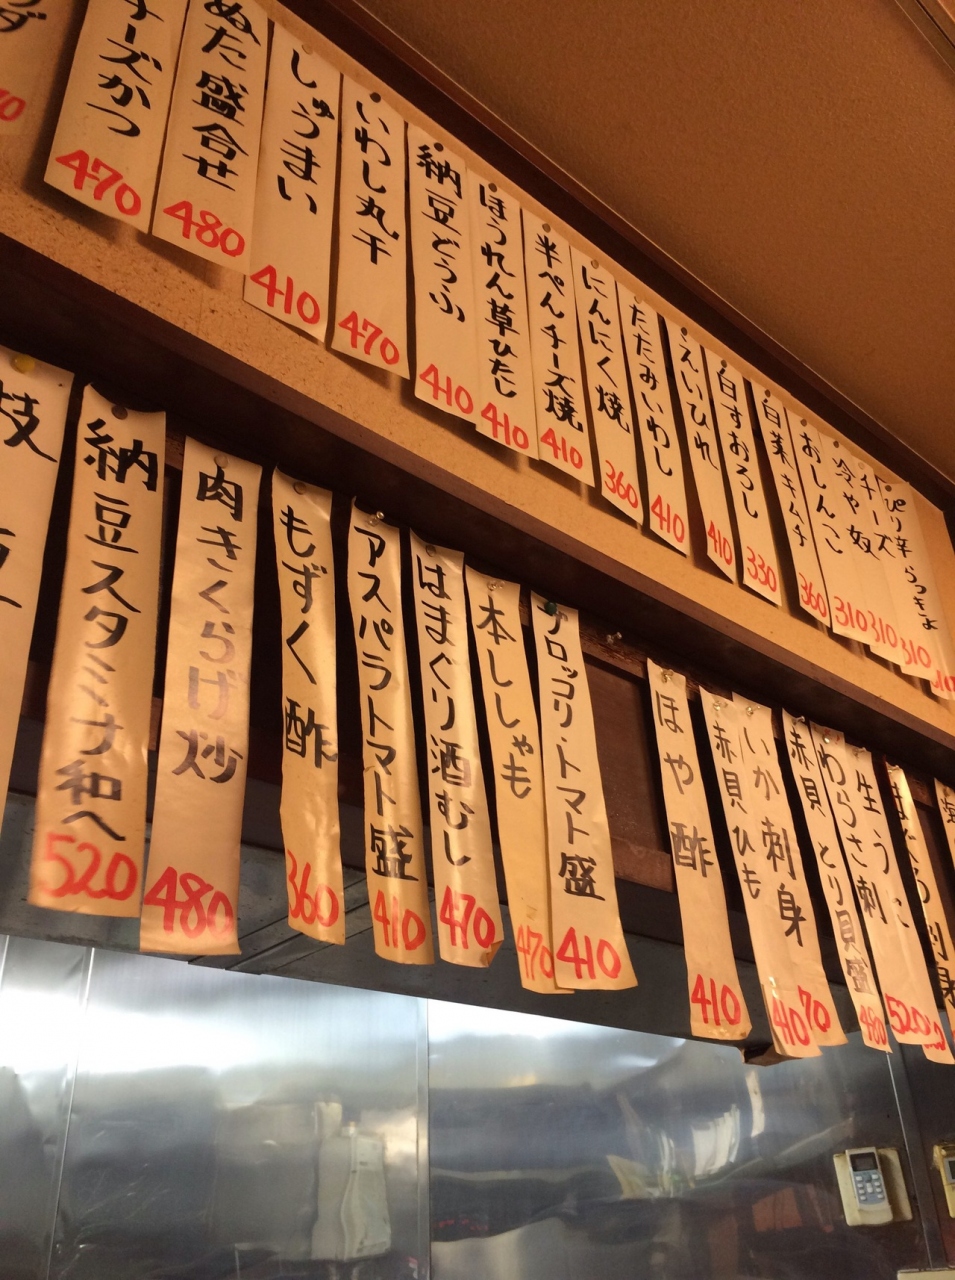 チーズかつ
470
ぬた盛合せ
480
しゅうまい
410
いわし丸干
470
納豆どうふ
410
ほうれん草ひたし
410
半ぺんチーズ焼
410
にんにく焼
360
たたみいわし
410
えいひれ
410
白すおろし
330
白菜キムチ
360
おしんこ
310
冷や奴
310
チーズ
310
ぴり辛らっきょ
枝
納豆スタミナ和へ
520
肉きくらげ炒
480
もずく酢
360
アスパラトマト盛
410
はまぐり酒むし
470
本ししゃも
470
ブロッコリ・トマト盛
410
ほや酢
410
赤貝ひも
いか刺身
410
赤貝とり貝盛
70
わらさ刺
480
生うに
520
まぐろ刺身